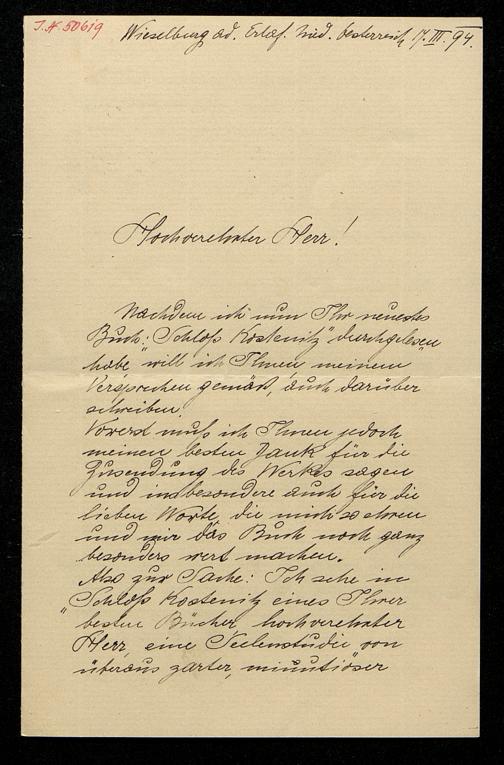 I.N. 50619
Wieselburg ad. Erlaf. Nied. Oesterreich 17. III. 94.
Hochverehrter Herr!
Nachdem ich nun Ihr neuestes
Buch: „Schloß Kostenitz" durchgelesen
habe, will ich Ihnen meinem
Versprechen gemäß, auch darüber
schreiben.
Vorerst muß ich Ihnen jedoch
meinen besten Dank für die
Zusendung des Werkes sagen
und insbesondere auch für die
lieben Worte, die mich so ehren
und mir das Buch noch ganz
besonders wert machen.
Also zur Sache: Ich sehe in
„Schloß Kostenitz eines Ihrer
besten Bücher, hochverehrter
Herr, eine Seelenstudie von
überaus zarter, minutiöser